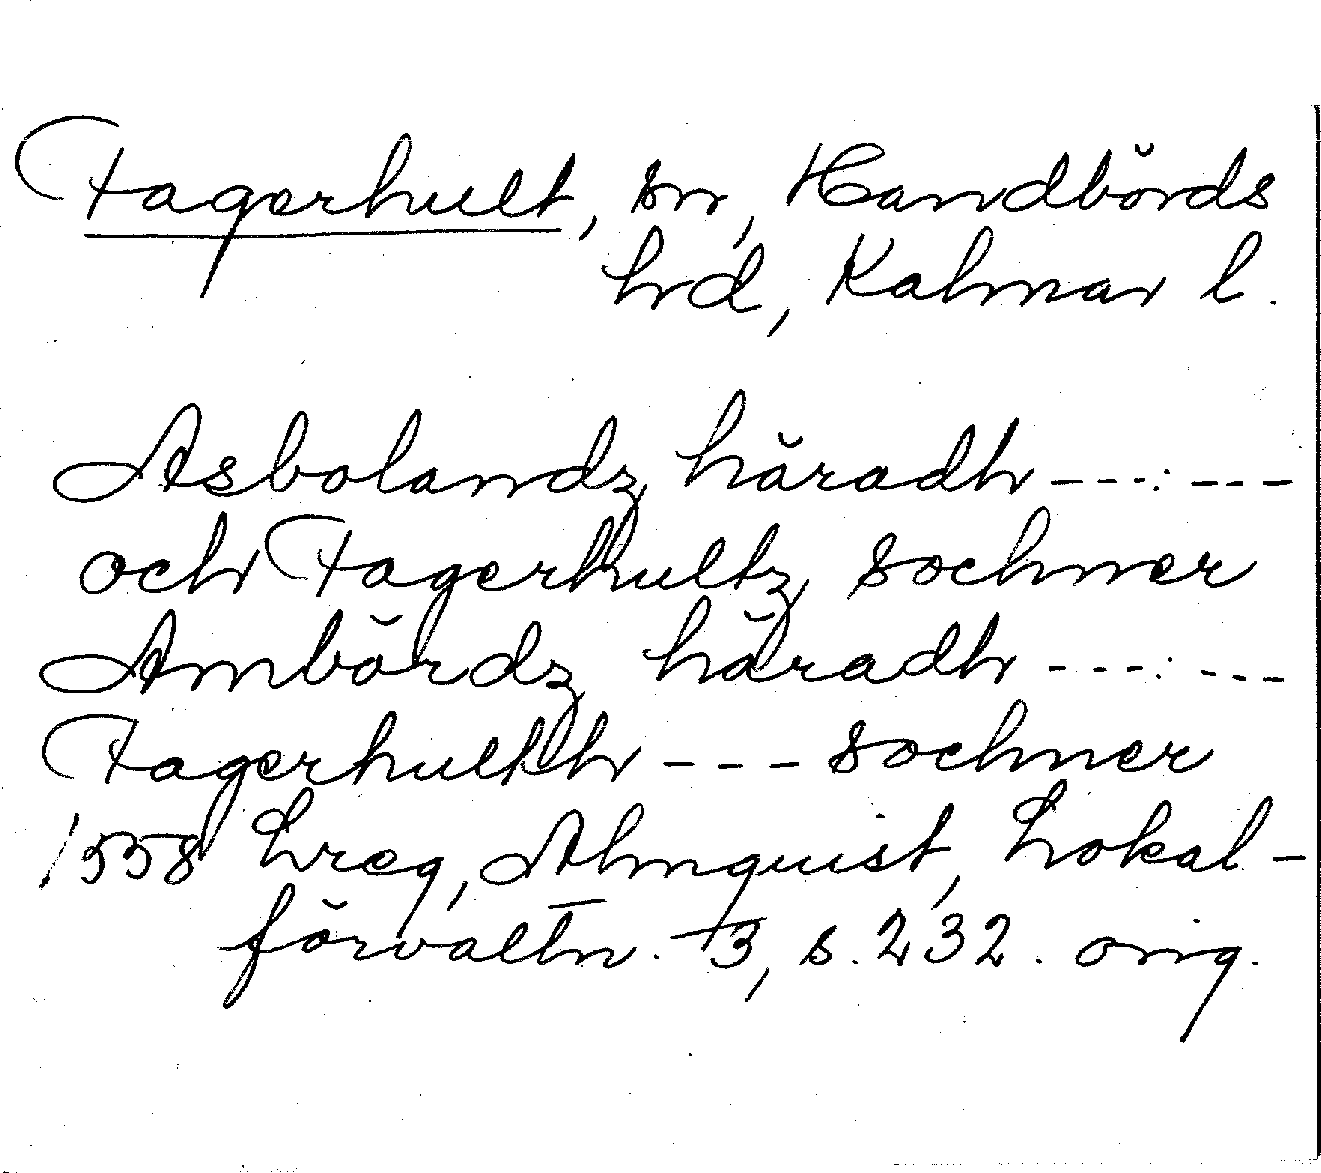 Fagerhult, sn, Handbörds
hd, Kalmar l.
Asbolandz häradh ---:---
och Fagerhultz sochner
Ambördz häradh ---:---
Fagerhultth --- sochner
1558 Lreg, Almquist, Lokal-
förvaltn. 3, s. 232. orig.